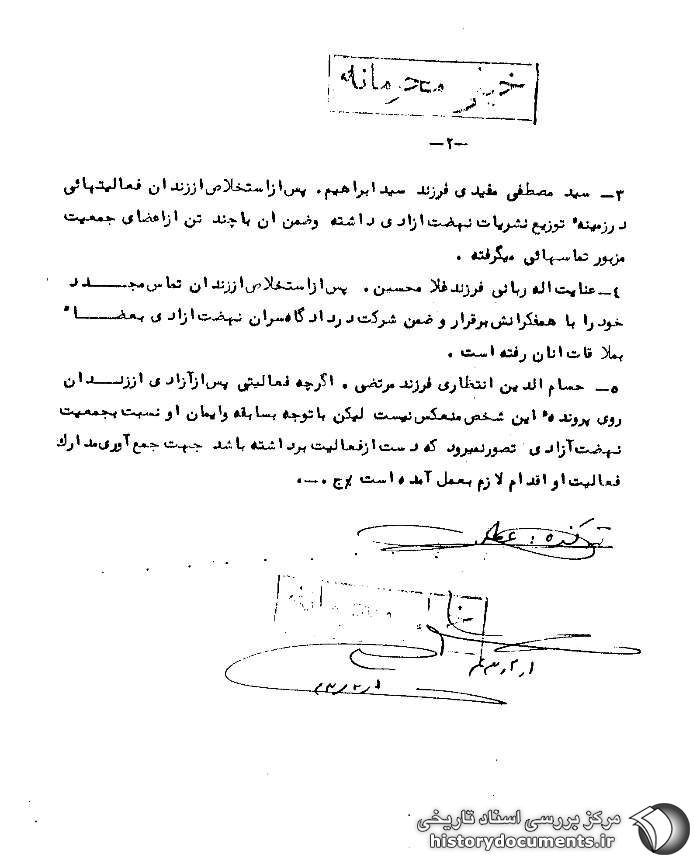 خیلی محرمانه
-۲-
۳- سید مصطفی مفیدی فرزند سید ابراهیم. پس از استخلاص از زندان فعالیتهائی
در زمینهٔ توزیع نشریات نهضت ازادی داشته وضمن ان با چند تن از اعضای جمعیت
مزبور تماسهائی میگرفته .
٤- عنایت اله ربانی فرزند غلا محسین . پس از استخلاص از زندان تماس مجـــدد
خود را با همفکرانش برقرار و ضمن شرکت در دادگاه سران نهضت ازادی بعضـــاً
بملا قات انان رفته است .
٥- حسام الدین انتظاری فرزند مرتضی . اگرچه فعالیتی پس از آزادی از زنـــدان
روی پروندهٔ این شخص منعکس نیست لیکن با توجه بسابقه وایمان او نسبت بجمعیت
نهضت آزادی تصور نمیرود که دست از فعالیت برداشته باشد جهت جمع آوری مدارك
فعالیت او اقدام لا زم بعمل آمده است
محرمانه
۴۳٫۲٫۱
مرکز بررسی اسناد تاریخی
historydocuments.ir